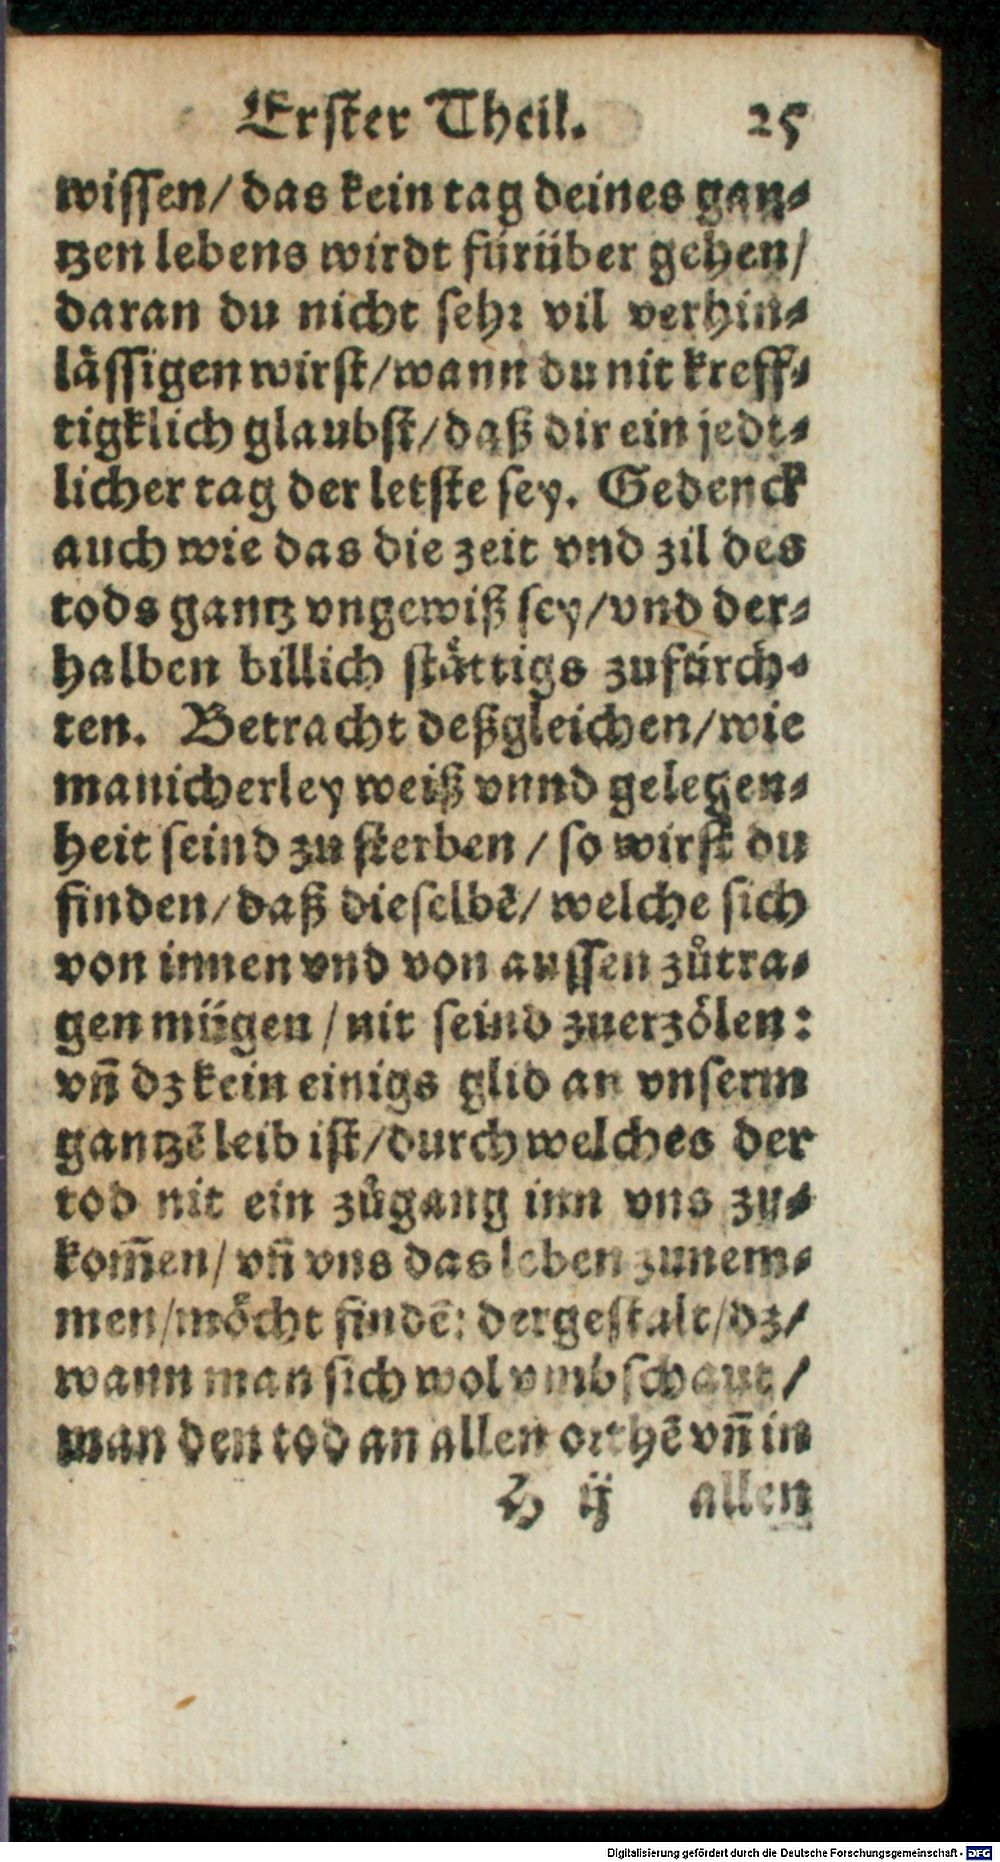 Erster Theil. 25
wissen/ das kein tag deines gan⸗
tzen lebens wirdt fürüber gehen/
daran du nicht sehꝛ vil verhin⸗
lässigen wirst/wann du nit kreff⸗
tigklich glaubst/daß dir ein jedt⸗
licher tag der letste sey. Gedenck
auch wie das die zeit vnd zil des
tods gantz vngewiß sey/vnd der⸗
halben billich stättigs zufürch⸗
ten. Betracht deßgleichen/wie
manicherley weiß vnnd gelegen⸗
heit seind zu sterben / so wirst du
finden/daß dieselbẽ/ welche sich
von innen vnd von aussen zůtra⸗
gen mügen / nit seind zuerzölen:
vñ dz kein einigs glid an vnserm
gantzẽ leib ist/durch welches der
tod nit ein zůgang inn vns zu⸗
kom̃en/ vñ vns das leben zunem⸗
men/möcht findẽ: dergestalt/dz/
wann man sich wol vmbschaut/
man den tod an allen orthẽ vñ in
H ij allen
Digitalisierung gefördert durch die Deutsche Forschungsgemeinschaft - DFG